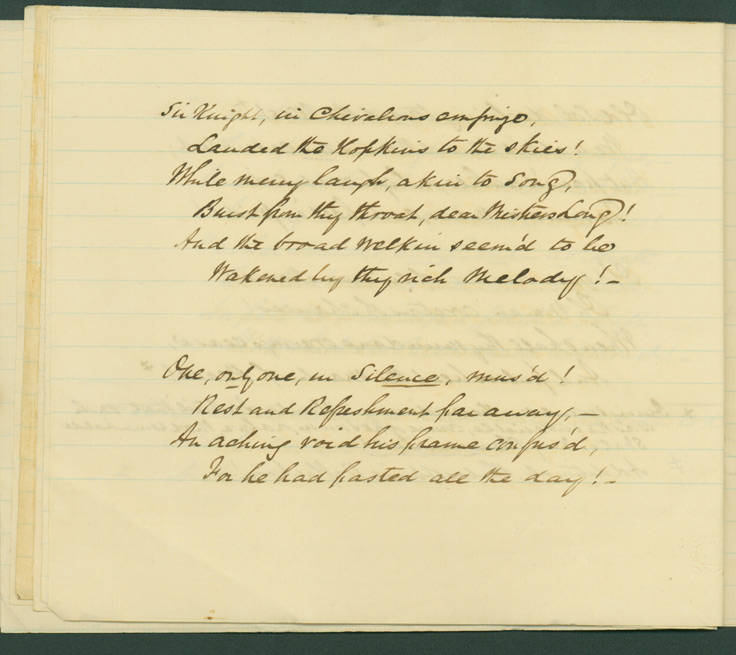 Sir Knight, in Chivalrous emprize,
Lauded the Hopkins to the skies!
While merry laugh, akin to Song,
Burst from thy throat, dear Mistress Long!
And the broad welkin seem'd to be
Wakened by thy rich Melody! –
One, only one, in Silence, mus'd!
Rest and Refreshment far away, –
An aching void his frame confus'd,
For he had fasted all the day! –